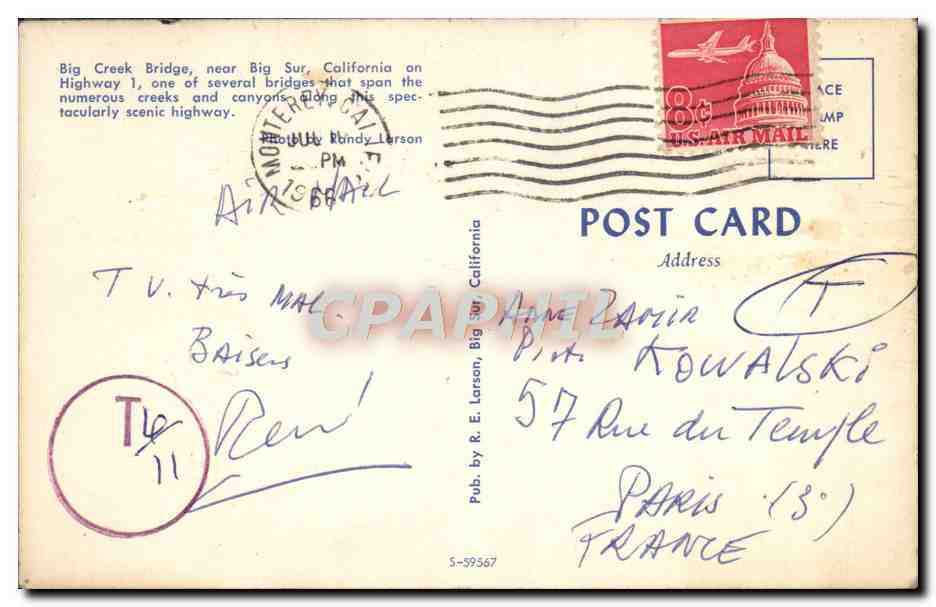 Big Creek Bridge, near Big Sur, California on
Highway 1, one of several bridges that span the
numerous creeks and canyons along this spec-
tacularly scenic highway.
Photo by Randy Larson
MONTEREY, CALIF.
JUL
PM
1966
8¢
U.S. AIR MAIL
PLACE
STAMP
HERE
AIR MAIL
POST CARD
Address
T
T V. très MAL.
Baisers
René
T 4/11
Pub. by R. E. Larson, Big Sur, California
KOWALSKI
57 Rue du Temple
PARIS (3°)
FRANCE
S-59567
CPAPHIL